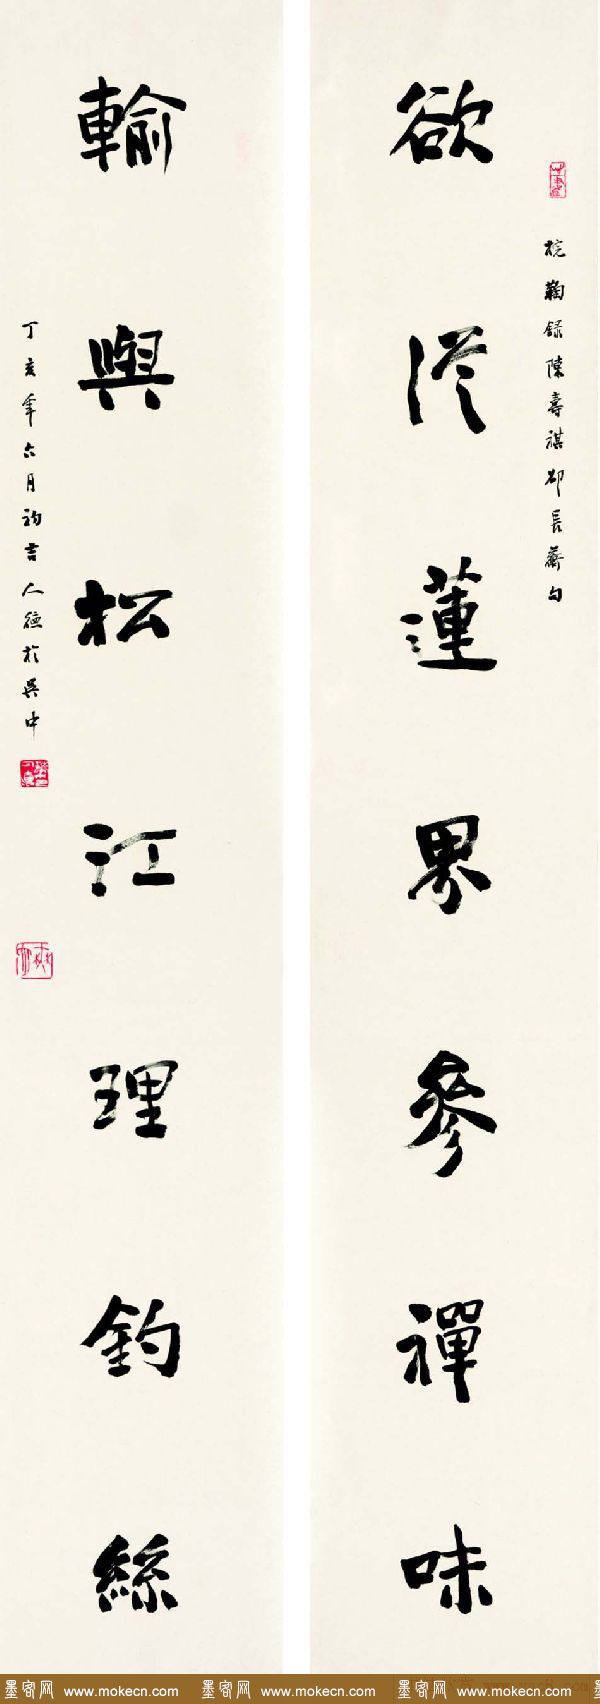 欲從蓮界參禪味
陳壽祺郤長蘅句
輸與松江理釣絲
丁亥年六月初吉人德於吳中
墨客网 www.mokecn.com 墨客网 www.mokecn.com 墨客网 www.mokecn.com